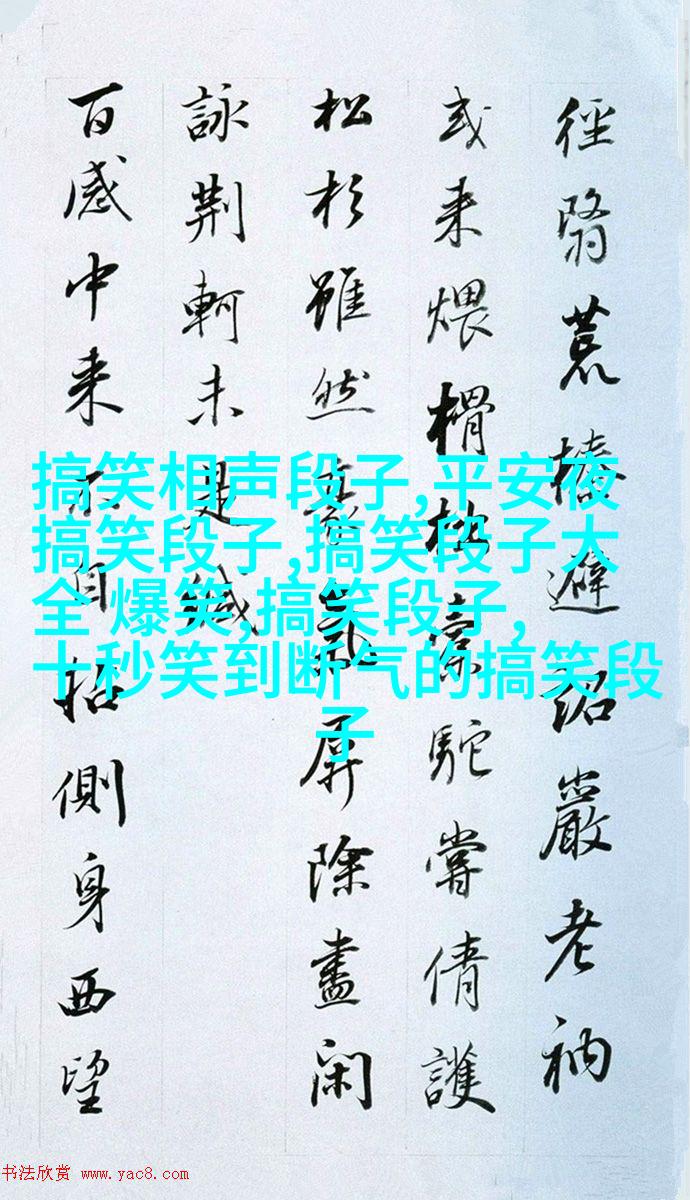 徑翳荒榛避嚴老衲
或来煨榾柮橐駝嘗倩護
松杉雖然無氣屏除盡閑
詠荆軻未是
百感中来不自側身西望
搞笑相声段子,平安夜
搞笑段子,搞笑段子大
全 爆笑,搞笑段子,
十秒笑到断气的搞笑段
子
书法欣赏 www.yac8.com